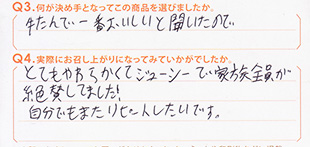 Q3.何が決め手となってこの商品を選びましたか。
牛たんで一番おいしいと聞いたので
Q4.実際にお召し上がりになってみていかがでしたか。
とてもやわらかくてジューシーで家族全員が
絶賛してました!
自分でもまたリピートしたいです。